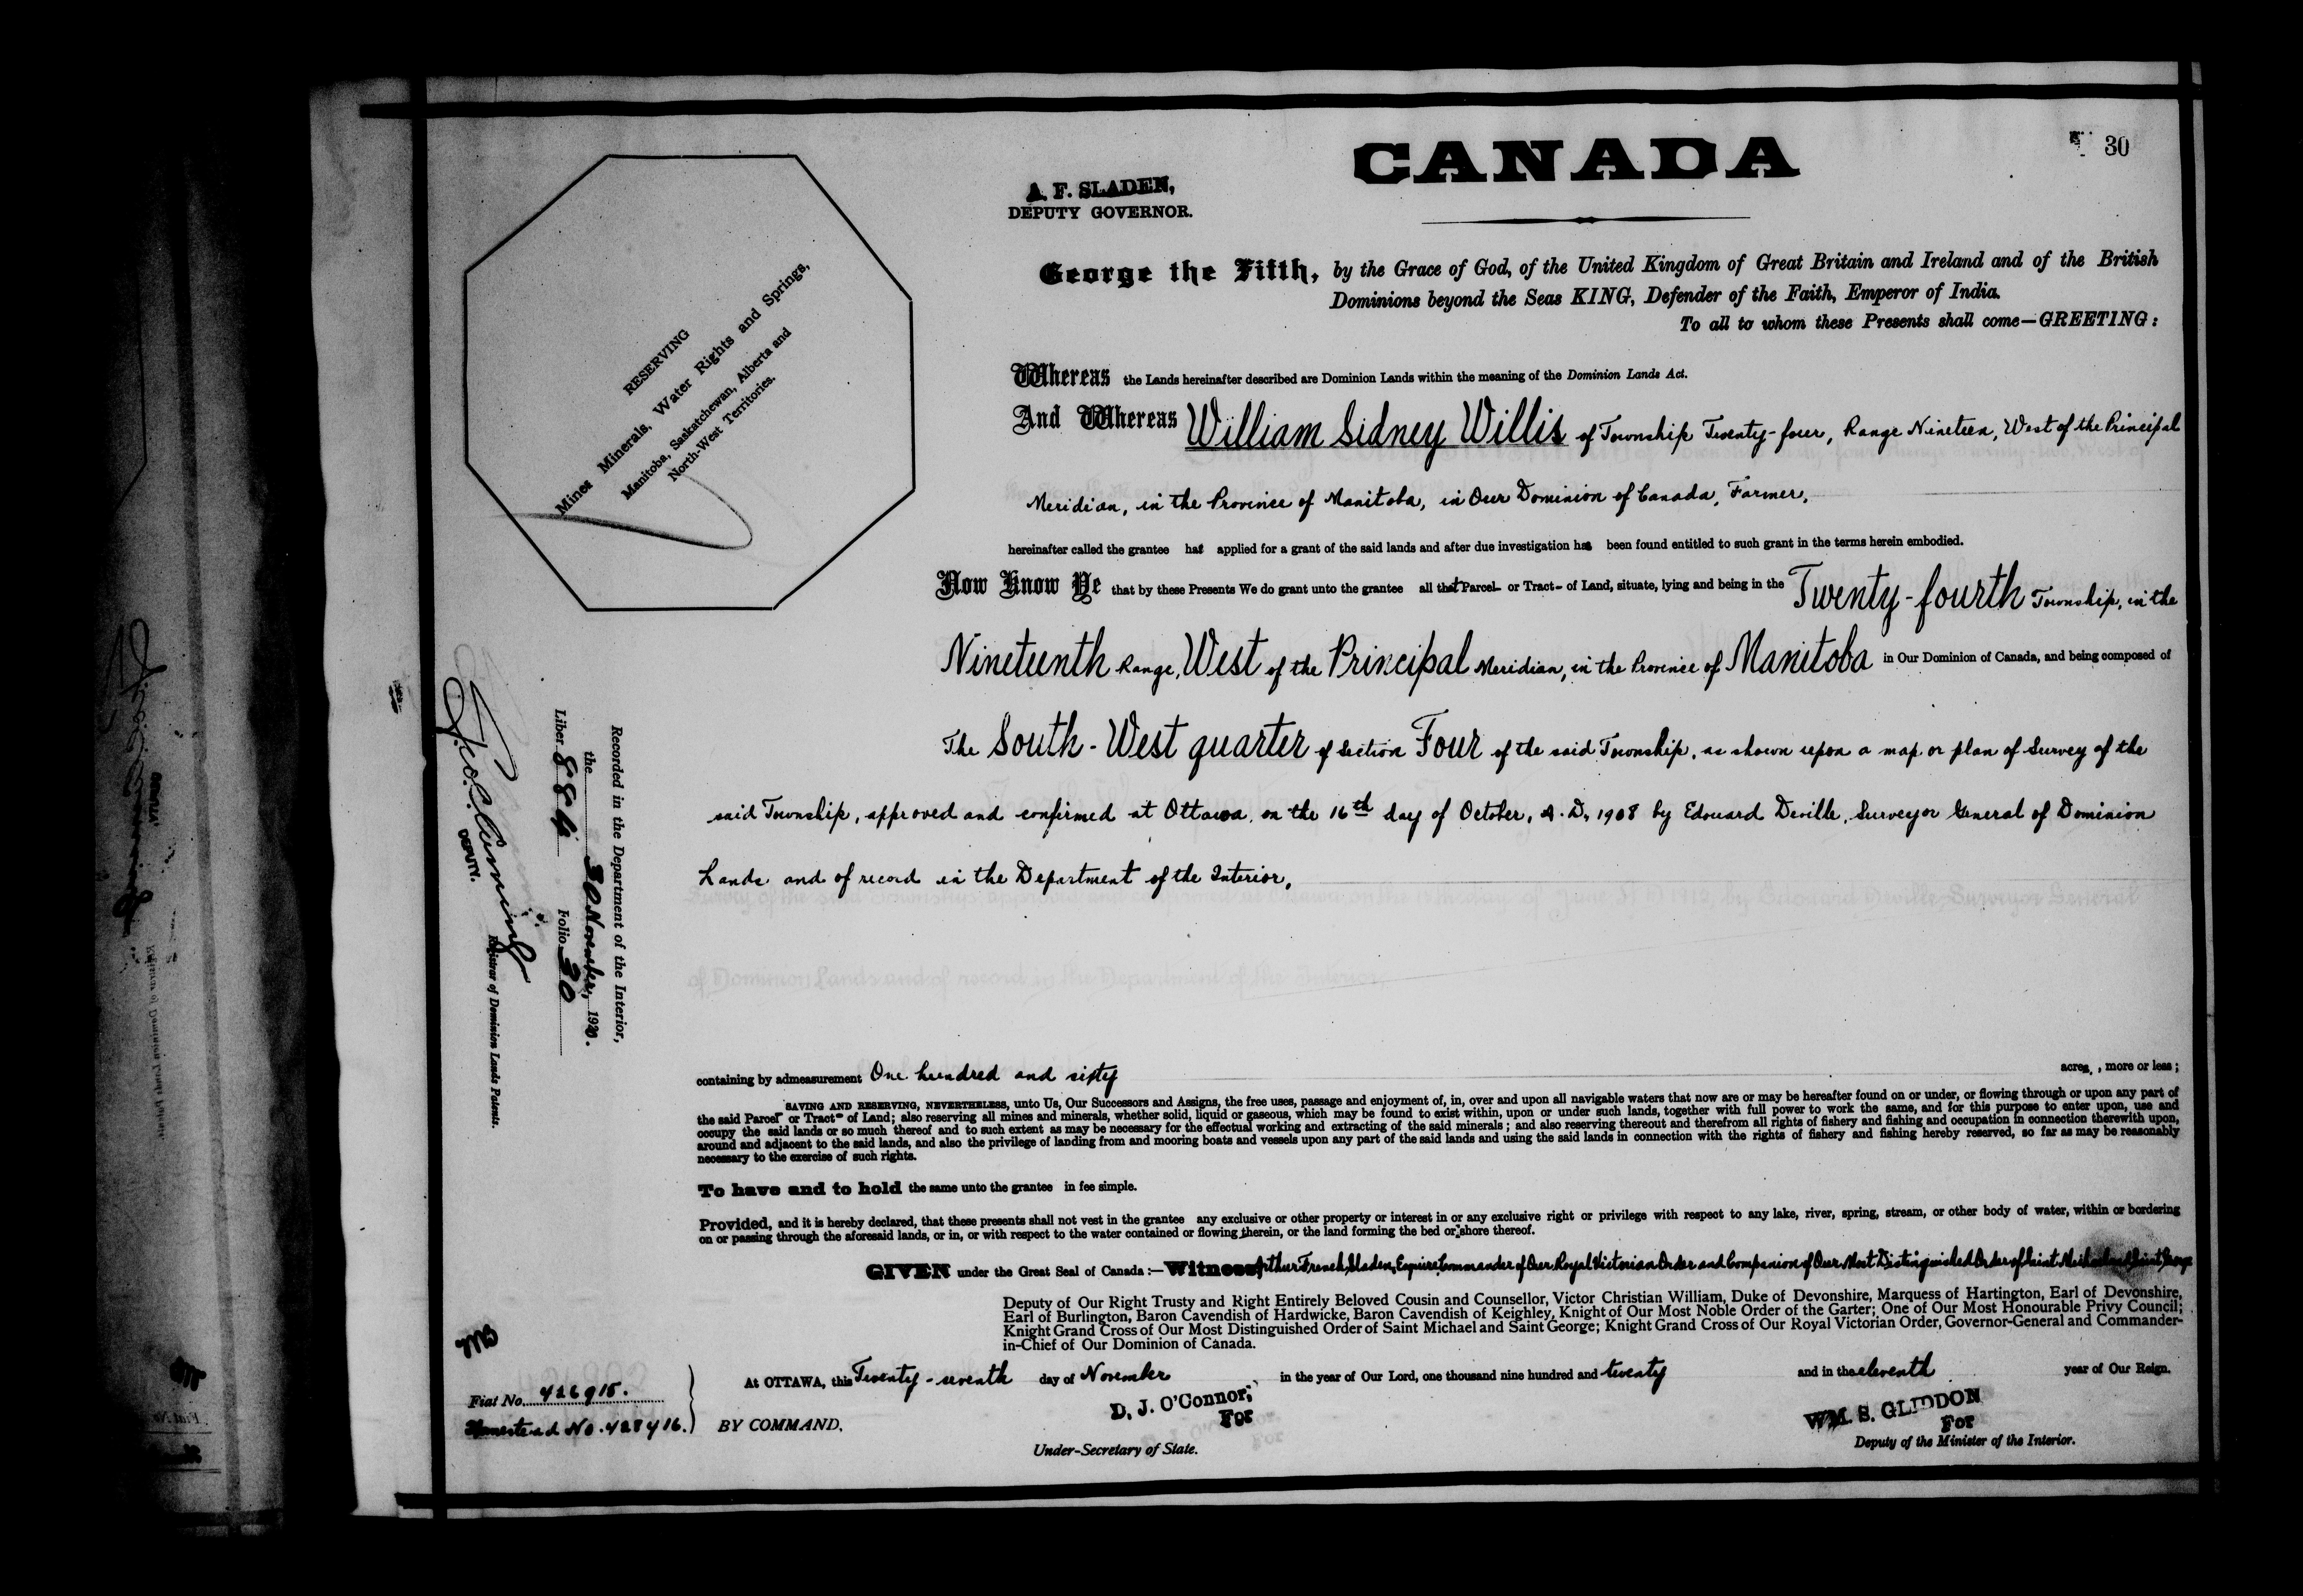 CANADA
30
A. F. SLADEN,
DEPUTY GOVERNOR.
George the Fifth, by the Grace of God, of the United Kingdom of Great Britain and Ireland and of the British
Dominions beyond the Seas KING, Defender of the Faith, Emperor of India.
To all to whom these Presents shall come—GREETING:
RESERVING
Mines Minerals, Water Rights and Springs,
Manitoba, Saskatchewan, Alberta and
North-West Territories.
Whereas the Lands hereinafter described are Dominion Lands within the meaning of the Dominion Lands Act.
And Whereas William Sidney Willis of Township Twenty-four, Range Nineteen, West of the Principal
Meridian, in the Province of Manitoba, in Our Dominion of Canada, Farmer,
hereinafter called the grantee has applied for a grant of the said lands and after due investigation has been found entitled to such grant in the terms herein embodied.
Now Know Ye that by these Presents We do grant unto the grantee all that Parcel or Tract of Land, situate, lying and being in the Twenty-fourth Township, in the
Nineteenth Range, West of the Principal Meridian, in the Province of Manitoba in Our Dominion of Canada, and being composed of
The South-West quarter of Section Four of the said Township, as shown upon a map or plan of Survey of the
said Township, approved and confirmed at Ottawa, on the 16th day of October, A.D. 1908 by Edouard Deville, Surveyor General of Dominion
Lands and of record in the Department of the Interior.
Recorded in the Department of the Interior,
the 30 November, 1920.
Liber 884 Folio 30
DEPUTY.
Registrar of Dominion Lands Patents.
containing by admeasurement One hundred and sixty acres, more or less;
SAVING AND RESERVING, NEVERTHELESS, unto Us, Our Successors and Assigns, the free uses, passage and enjoyment of, in, over and upon all navigable waters that now are or may be hereafter found on or under, or flowing through or upon any part of
the said Parcel or Tract of Land; also reserving all mines and minerals, whether solid, liquid or gaseous, which may be found to exist within, upon or under such lands, together with full power to work the same, and for this purpose to enter upon, use and
occupy the said lands or so much thereof and to such extent as may be necessary for the effectual working and extracting of the said minerals; and also reserving thereout and therefrom all rights of fishery and fishing and occupation in connection therewith upon,
around and adjacent to the said lands, and also the privilege of landing from and mooring boats and vessels upon any part of the said lands and using the said lands in connection with the rights of fishery and fishing hereby reserved, so far as may be reasonably
necessary to the exercise of such rights.
To have and to hold the same unto the grantee in fee simple.
Provided, and it is hereby declared, that these presents shall not vest in the grantee any exclusive or other property or interest in or any exclusive right or privilege with respect to any lake, river, spring, stream, or other body of water, within or bordering
on or passing through the aforesaid lands, or in, or with respect to the water contained or flowing therein, or the land forming the bed or shore thereof.
GIVEN under the Great Seal of Canada:—Witness Arthur French Sladen, Esquire, Commander of Our Royal Victorian Order and Companion of Our Most Distinguished Order of Saint Michael and Saint George
Deputy of Our Right Trusty and Right Entirely Beloved Cousin and Counsellor, Victor Christian William, Duke of Devonshire, Marquess of Hartington, Earl of Devonshire,
Earl of Burlington, Baron Cavendish of Hardwicke, Baron Cavendish of Keighley, Knight of Our Most Noble Order of the Garter; One of Our Most Honourable Privy Council;
Knight Grand Cross of Our Most Distinguished Order of Saint Michael and Saint George; Knight Grand Cross of Our Royal Victorian Order, Governor-General and Commander-
in-Chief of Our Dominion of Canada.
At OTTAWA, this Twenty-seventh day of November in the year of Our Lord, one thousand nine hundred and twenty and in the eleventh year of Our Reign.
Fiat No. 426915.
Homestead No. 428416.
BY COMMAND,
D. J. O'Connor,
For
Under-Secretary of State.
WM. S. GLIDDON
For
Deputy of the Minister of the Interior.